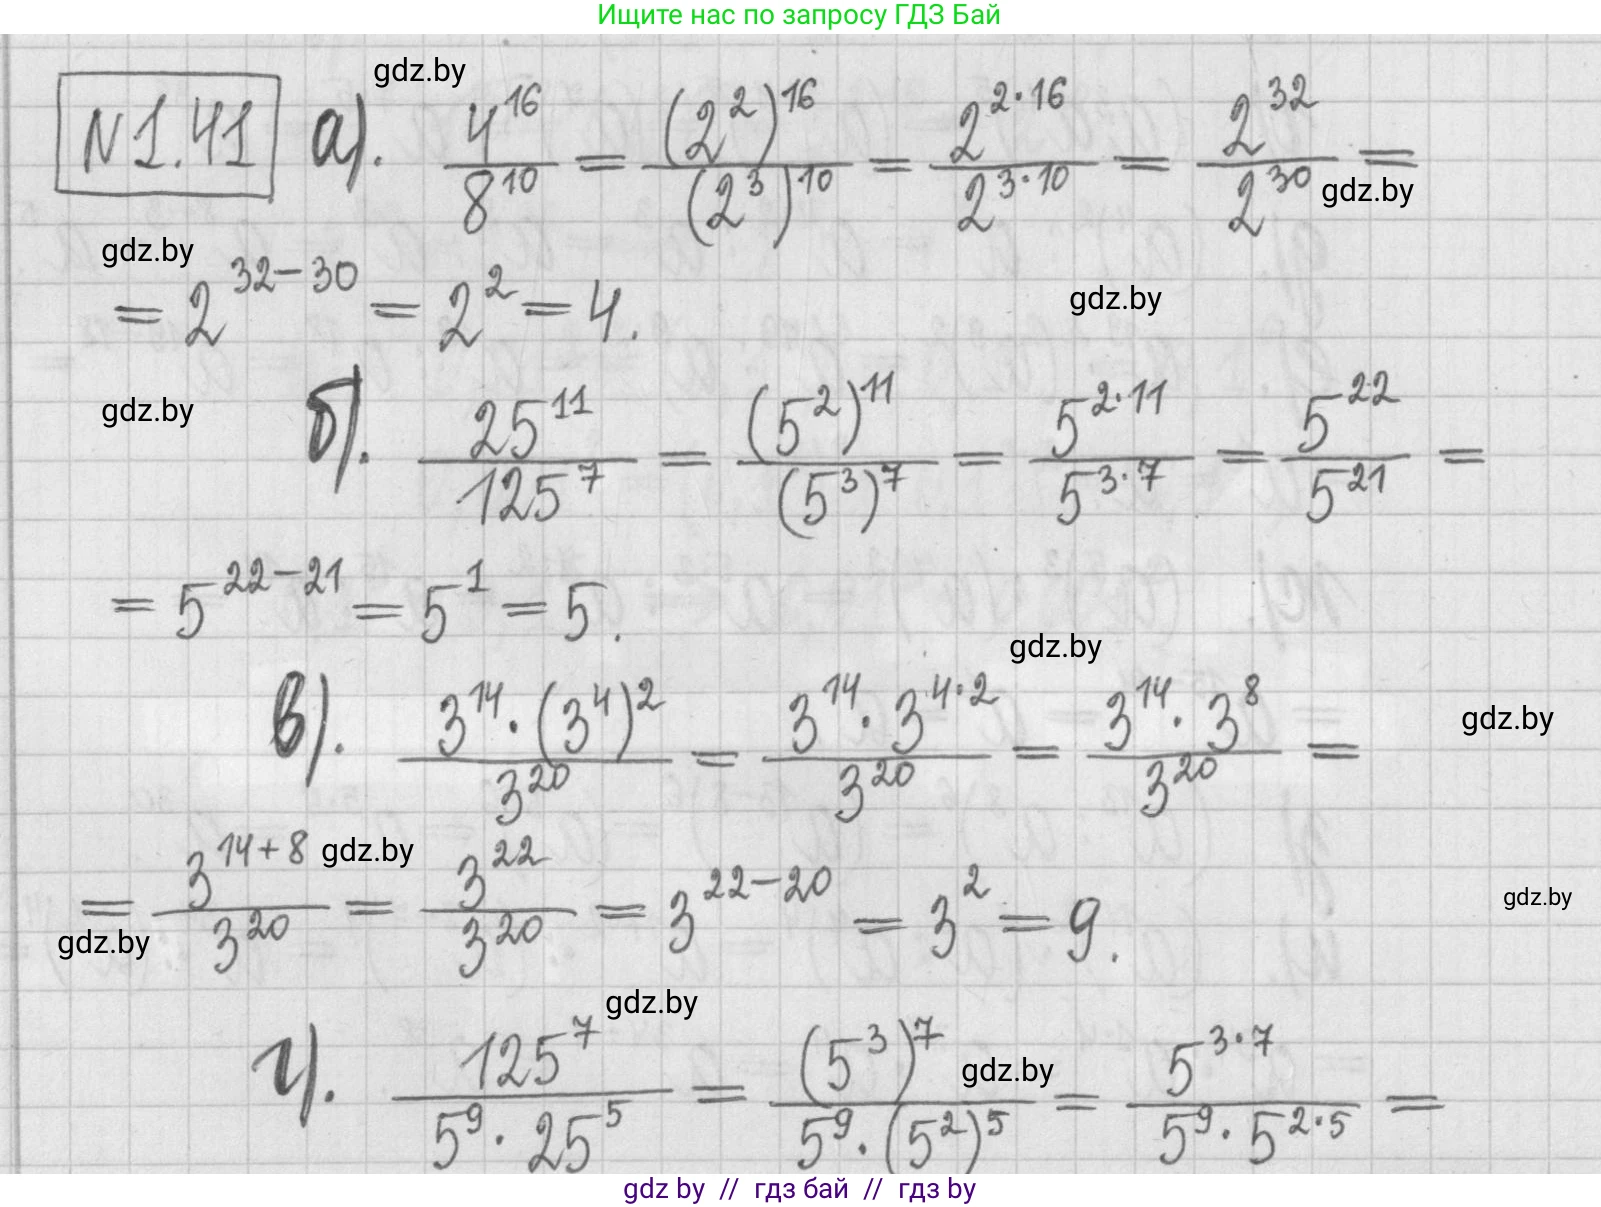 Ищите нас по запросу ГДЗ Бай
gdz.by
N1.41 а). 4^16/8^10 = (2^2)^16/(2^3)^10 = 2^(2·16)/2^(3·10) = 2^32/2^30 =
gdz.by
gdz.by
= 2^(32-30) = 2^2 = 4.
gdz.by
gdz.by
б). 25^11/125^7 = (5^2)^11/(5^3)^7 = 5^(2·11)/5^(3·7) = 5^22/5^21 =
= 5^(22-21) = 5^1 = 5.
gdz.by
в). 3^14·(3^4)^2/3^20 = 3^14·3^(4·2)/3^20 = 3^14·3^8/3^20 =
gdz.by
= 3^(14+8)/3^20 = 3^22/3^20 = 3^(22-20) = 3^2 = 9.
gdz.by
gdz.by
gdz.by
gdz.by
г). 125^7/(5^9·25^5) = (5^3)^7/(5^9·(5^2)^5) = 5^(3·7)/(5^9·5^(2·5)) =
gdz.by
gdz by // гдз бай // гдз by